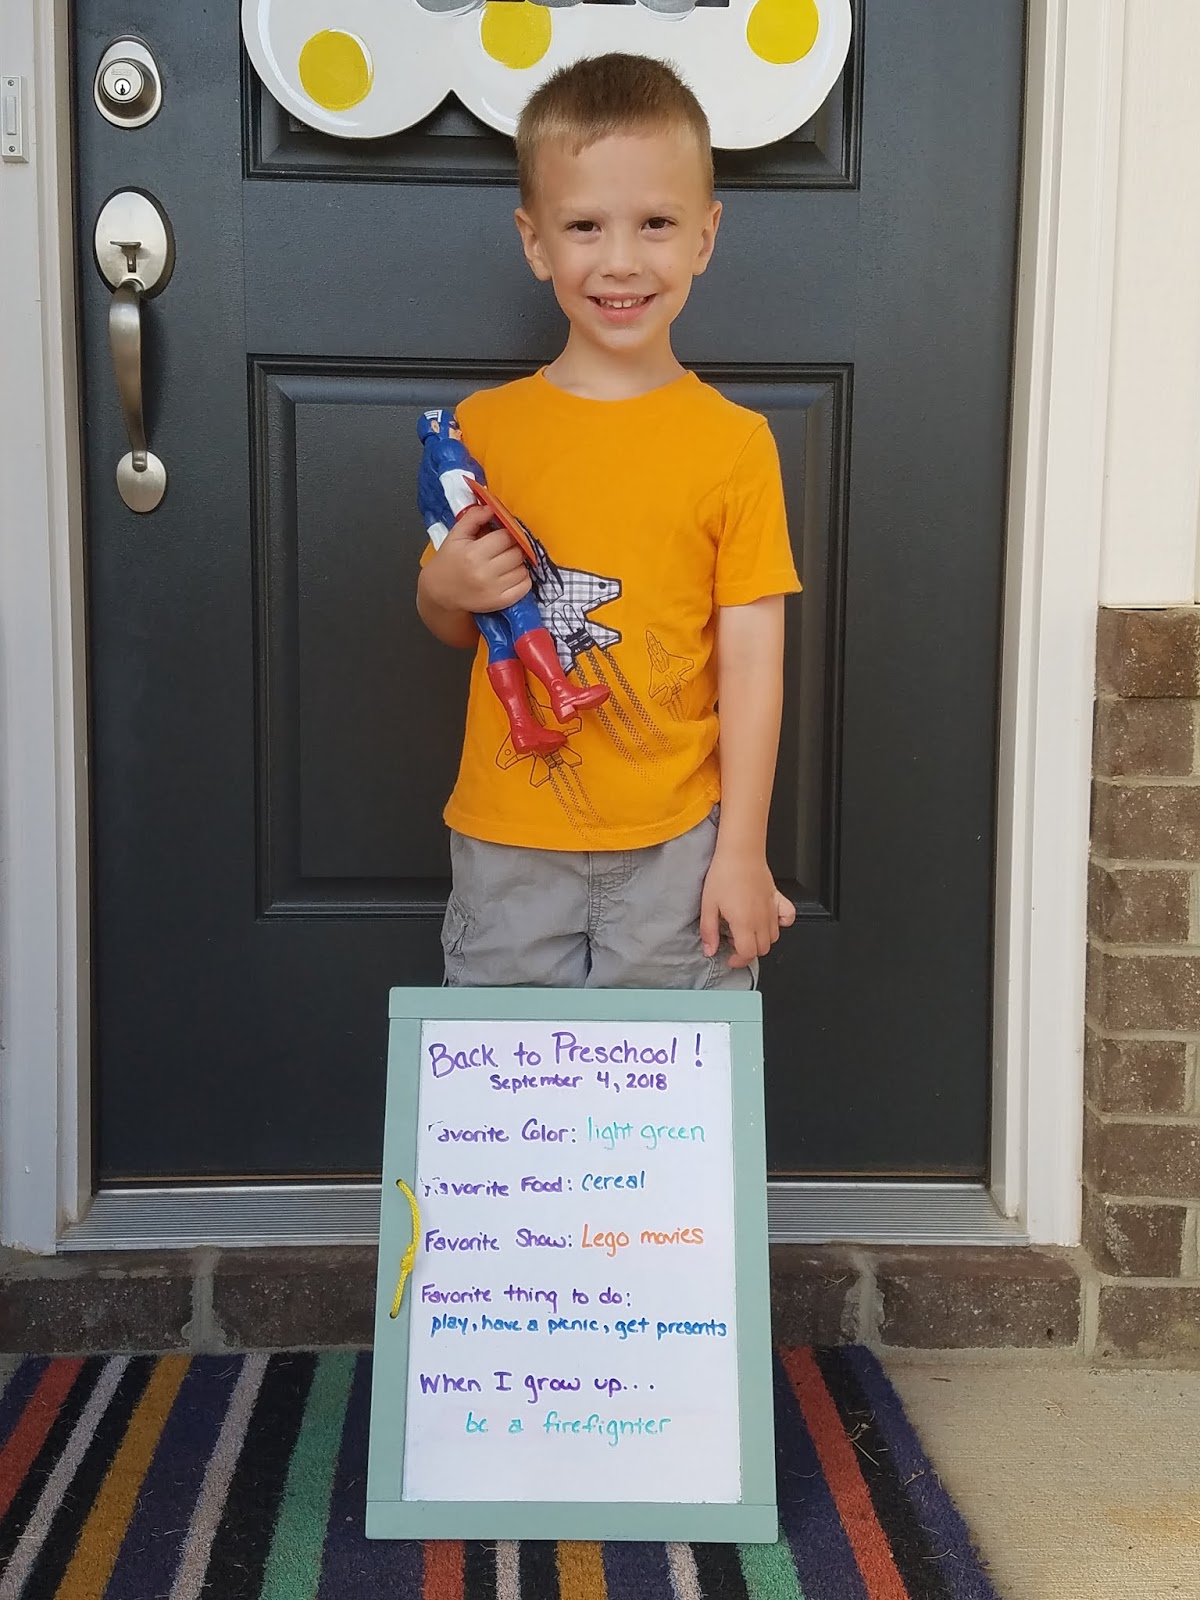 Back to Preschool!
September 4, 2018
Favorite Color: light green
Favorite Food: cereal
Favorite Show: Lego movies
Favorite thing to do:
play, have a picnic, get presents
When I grow up...
be a firefighter